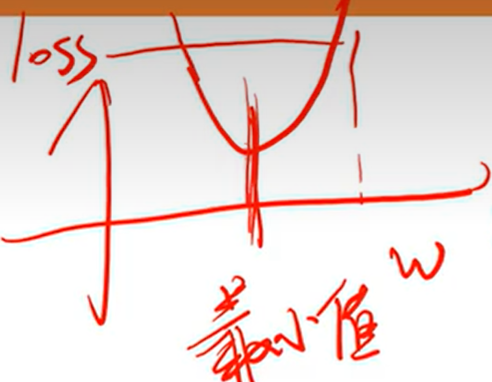 loss
w
最小值